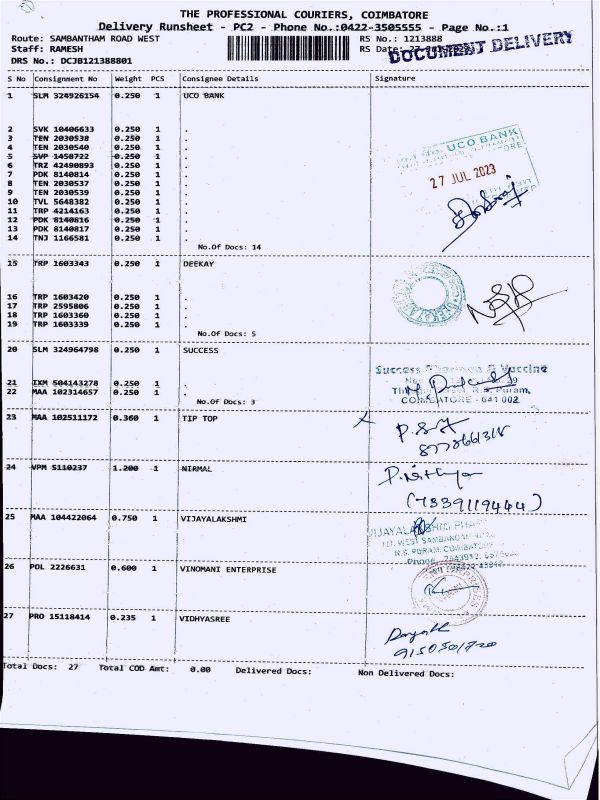 THE PROFESSIONAL COURIERS, COIMBATORE
Delivery Runsheet - PC2 - Phone No.:0422-3505555 - Page No.:1
Route: SAMBANTHAM ROAD WEST RS No.: 1213888
Staff: RAMESH RS Date:
DOCUMENT DELIVERY
DRS No.: DCJB121388801
S No Consignment No Weight PCS Consignee Details Signature
1 SLM 324926154 0.250 1 UCO BANK
2 SVK 10406633 0.250 1 .
3 TEN 2030538 0.250 1 .
4 TEN 2030540 0.250 1 .
5 SVP 1458722 0.250 1 .
6 TRZ 42490893 0.250 1 .
7 PDK 8140814 0.250 1 .
8 TEN 2030537 0.250 1 .
9 TEN 2030539 0.250 1 .
10 TVL 5648382 0.250 1 .
11 TRP 4214163 0.250 1 .
12 PDK 8140816 0.250 1 .
13 PDK 8140817 0.250 1 .
14 TNJ 1166581 0.250 1 .
No.Of Docs: 14
UCO BANK
27 JUL 2023
15 TRP 1603343 0.250 1 DEEKAY
16 TRP 1603420 0.250 1 .
17 TRP 2595806 0.250 1 .
18 TRP 1603360 0.250 1 .
19 TRP 1603339 0.250 1 .
No.Of Docs: 5
20 SLM 324964798 0.250 1 SUCCESS
21 IXM 504143278 0.250 1 .
22 MAA 102314657 0.250 1 .
No.Of Docs: 3
Success Vaccine
R.S. Puram,
COIMBATORE - 641 002
23 MAA 102511172 0.360 1 TIP TOP
24 VPM 5110237 1.200 1 NIRMAL
(7339119444)
25 MAA 104422064 0.750 1 VIJAYALAKSHMI
R.S. PURAM, COIMBATORE
Phone
26 POL 2226631 0.600 1 VINOMANI ENTERPRISE
27 PRO 15118414 0.235 1 VIDHYASREE
Total Docs: 27 Total COD Amt: 0.00 Delivered Docs: Non Delivered Docs: